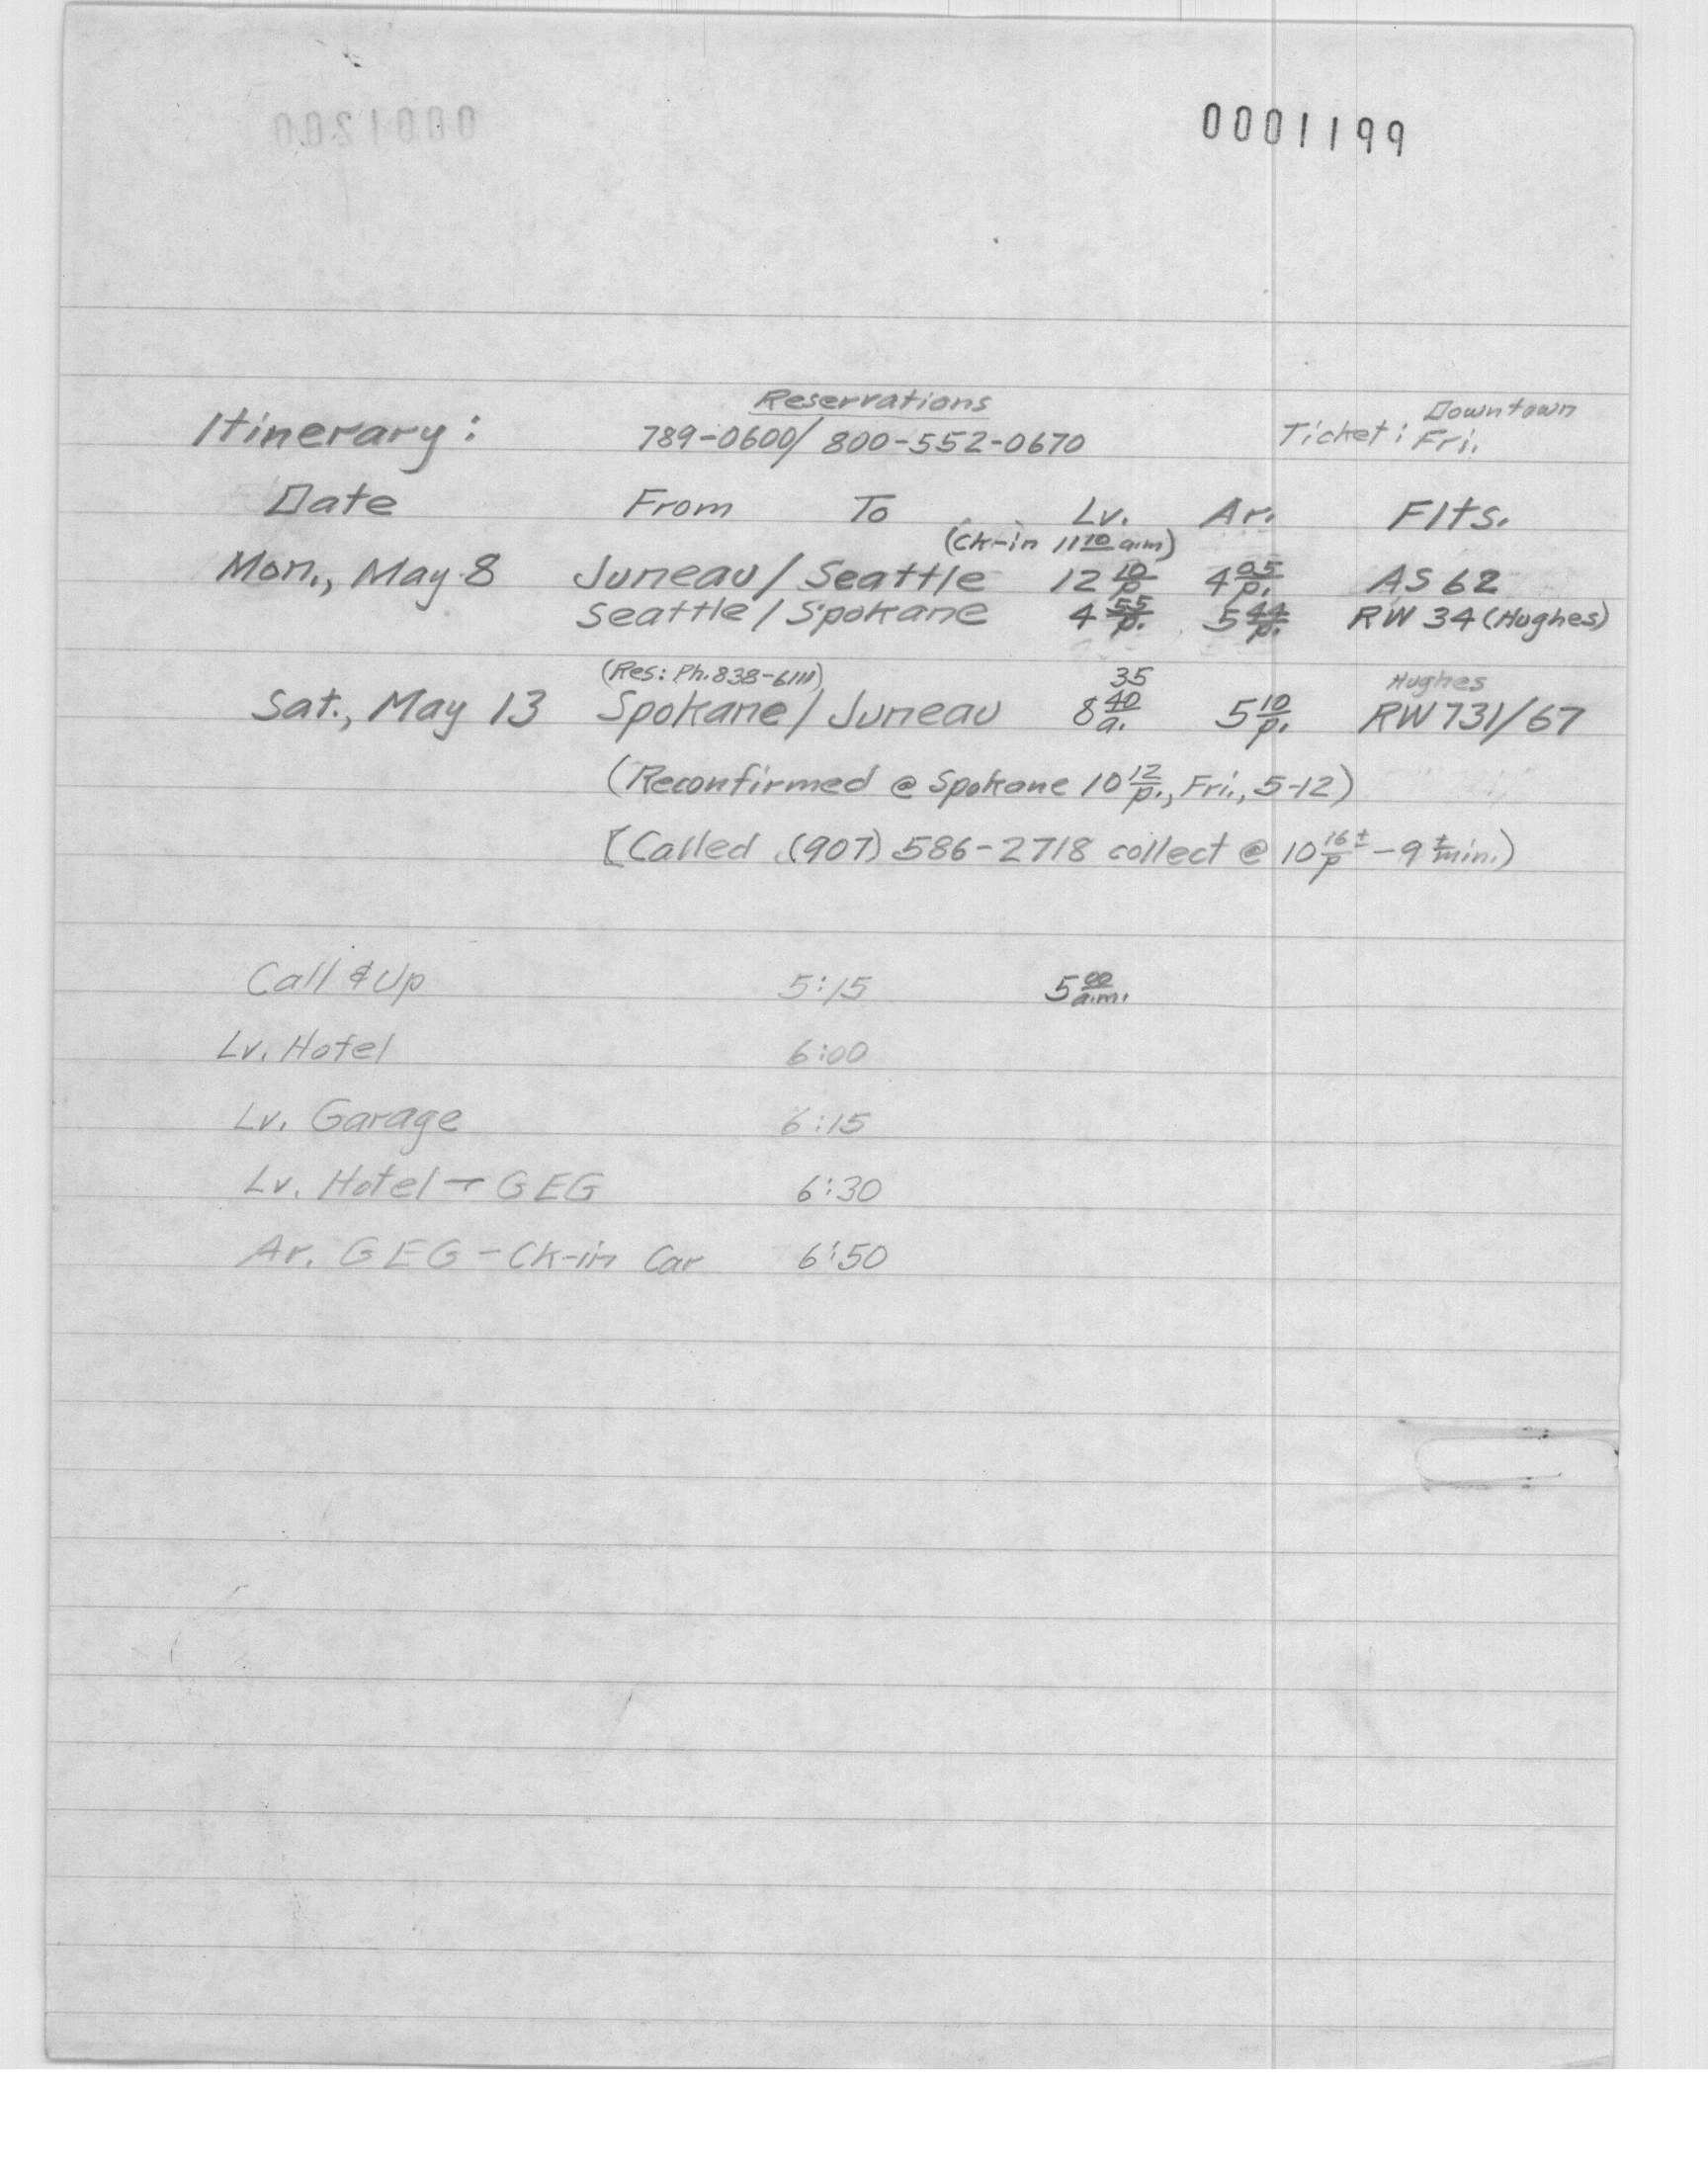 0001200
0001199
Reservations
Downtown
Itinerary: 789-0600/ 800-552-0670 Ticket: Fri.
Date From To Lv. Ar. Flts.
(Ck-in 11 10 a.m)
Mon., May 8 Juneau/Seattle 12 10 p 4 05 p. AS 62
Seattle/Spokane 4 55 p. 5 44 p. RW 34 (Hughes)
(Res: Ph. 838-6111) 35 Hughes
Sat., May 13 Spokane/Juneau 8 40 a. 5 10 p. RW 731/67
(Reconfirmed @ Spokane 10 12 p., Fri., 5-12)
[Called (907) 586-2718 collect @ 10 16± p - 9 ± min.)
Call & Up 5:15 5 00 a.m.
Lv. Hotel 6:00
Lv. Garage 6:15
Lv. Hotel → GEG 6:30
Ar. GEG - Ck-in Car 6:50